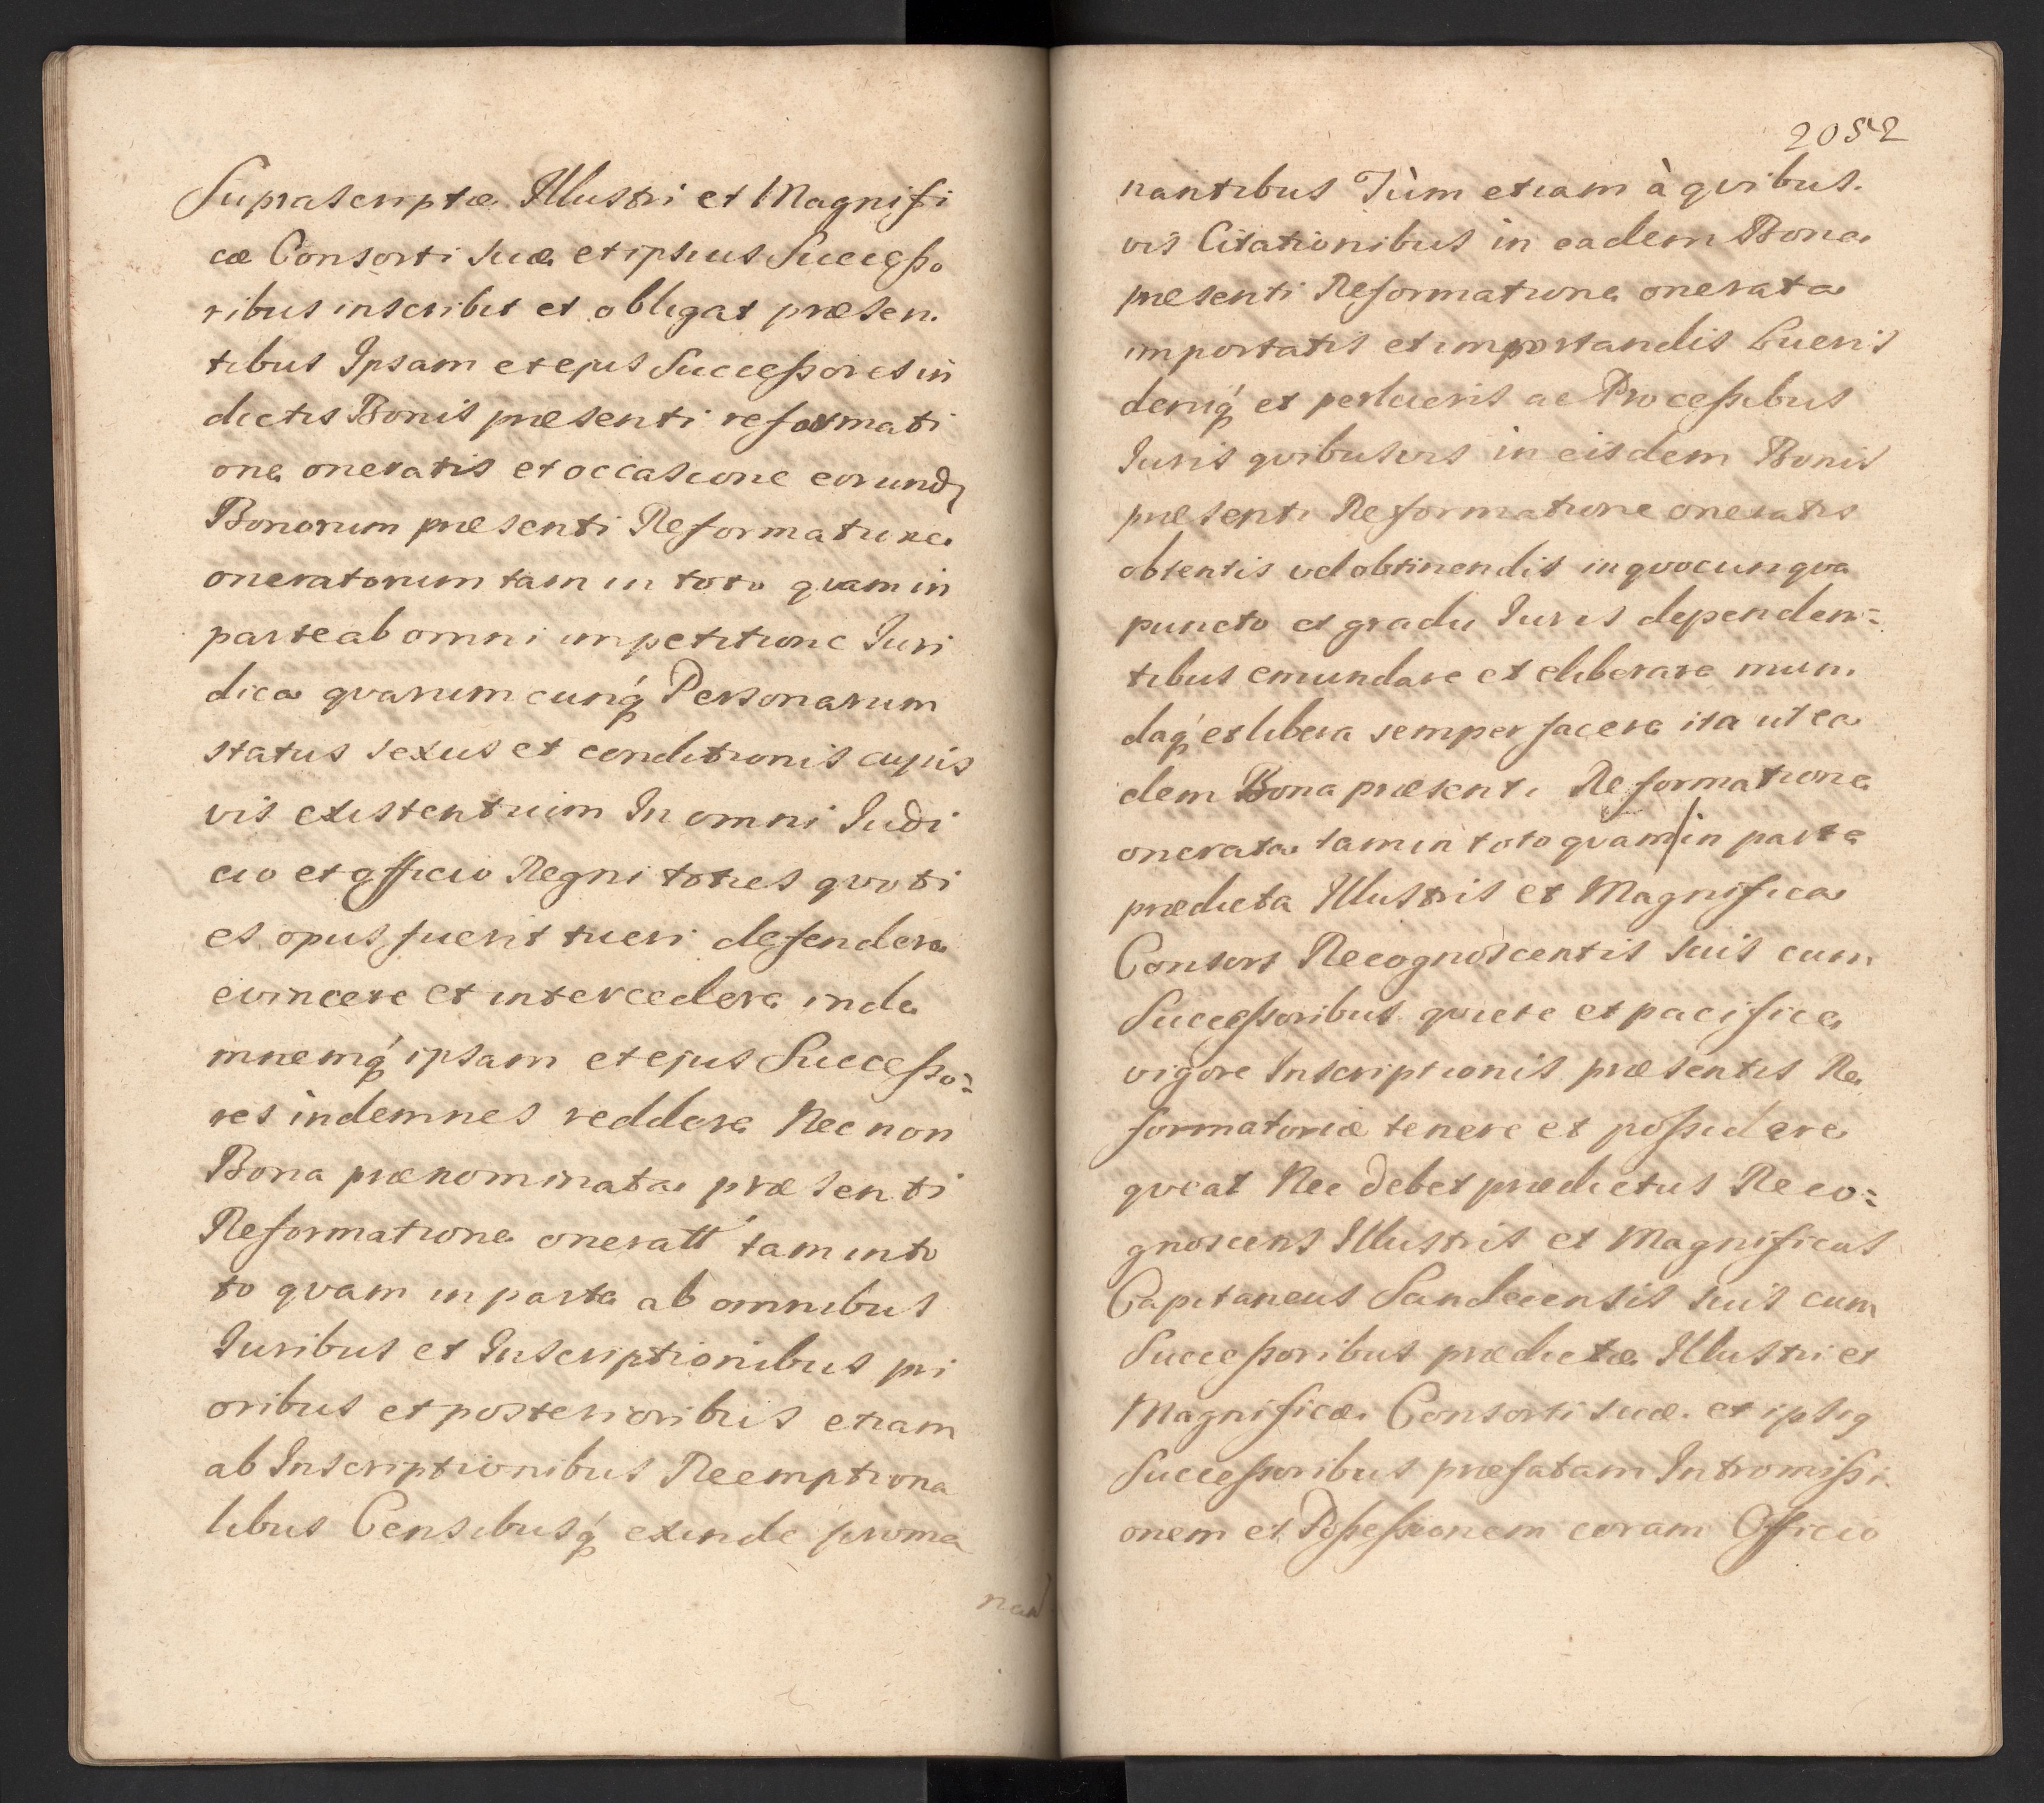 Suprascriptæ Illustri et Magnifi
cæ Consorti suæ et ipsius Successo
ribus inscribit et obligat præsen.
tibus Ipsam et ejus Successores in
dictis Bonis præsenti reformati
one oneratis et occasione eorund
Bonorum præsenti Reformatione
oneratorum tam in toto quam in
parte ab omni impetitione Juri
dica qvarumcunq́ Personarum
status sexus et conditionis cujus
vis existentium In omni Judi
cio et officio Regni toties qvoti
es opus fuerit tueri defendere
evincere et intercedere inde
mnemq́ ipsam et ejus Successo=
res indemnes reddere Nec non
Bona prænominata præsenti
Reformatione oneratt tam in to
to qvam in parte ab omnibus
Juribus et Inscriptionibus pri
oribus et posterioribus etiam
ab Inscriptionibus Reemptiona
libus Censibusq́ exinde proma
nan
2052
nantibus Tùm etiam à qvibus.
vis Citationibus in eadem Bona
præsenti Reformatione onerata
importatis et importandis Lucris
deniq́ et perlucris ac Processibus
Juris qvibusvis in eisdem Bonis
præsenti Reformatione oneratis
obtentis vel obtinendis in qvocunqve
puncto et gradu Juris dependen=
tibus emundare et eliberare mun.
daq́ et libera semper facere ita ut ea
dem Bona præsenti Reformatione
onerata tam in toto qvam in parte
prædicta Illustris et Magnifica
Consors Recognoscentis suis cum
Successoribus qviete et pacifice
vigore Inscriptionis præsentis Re
formatoriæ tenere et possidere
qveat Nec debet prædictus Reco=
gnoscens Illustris et Magnificus
Capitaneus Sandecensis suis cum
Successoribus prædictæ Illustri et
Magnificæ Consorti suæ et ipsig
Successoribus præfatam Intromissi.
onem et Possessionem coram Officio